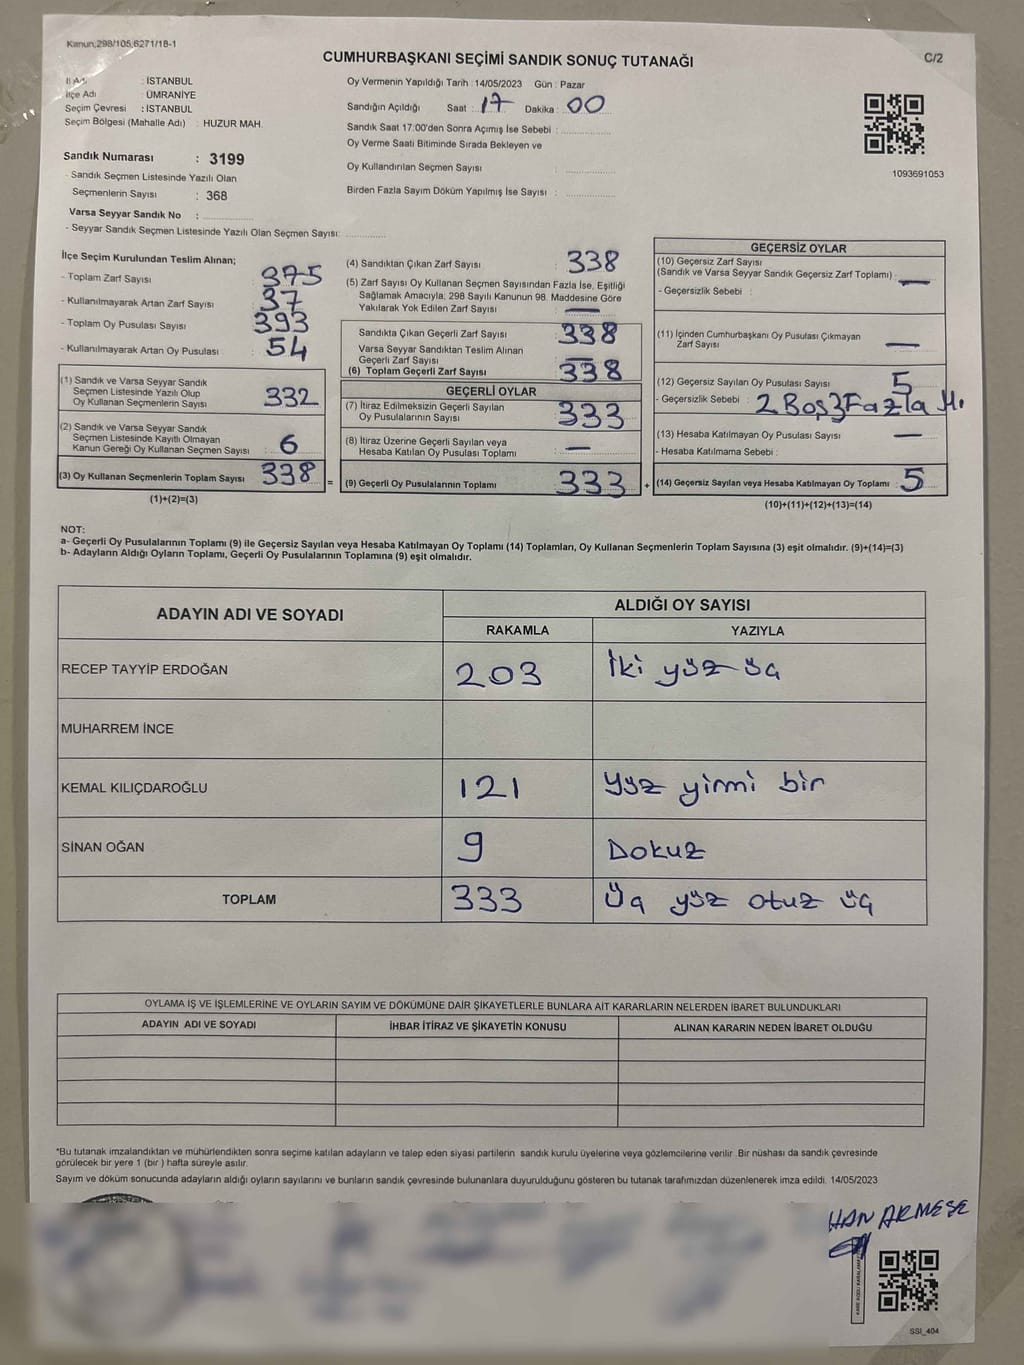 Kanun;298/105,6271/18-1
CUMHURBAŞKANI SEÇİMİ SANDIK SONUÇ TUTANAĞI
C/2
İl Adı : İSTANBUL
İlçe Adı : ÜMRANİYE
Seçim Çevresi : İSTANBUL
Seçim Bölgesi (Mahalle Adı) : HUZUR MAH.
Sandık Numarası : 3199
- Sandık Seçmen Listesinde Yazılı Olan
Seçmenlerin Sayısı : 368
Varsa Seyyar Sandık No :
- Seyyar Sandık Seçmen Listesinde Yazılı Olan Seçmen Sayısı:
Oy Vermenin Yapıldığı Tarih : 14/05/2023 Gün : Pazar
Sandığın Açıldığı Saat : 17 Dakika : 00
Sandık Saat 17:00'den Sonra Açımış İse Sebebi :
Oy Verme Saati Bitiminde Sırada Bekleyen ve
Oy Kullandırılan Seçmen Sayısı :
Birden Fazla Sayım Döküm Yapılmış İse Sayısı :
1093691053
İlçe Seçim Kurulundan Teslim Alınan;
- Toplam Zarf Sayısı : 375
- Kullanılmayarak Artan Zarf Sayısı : 37
- Toplam Oy Pusulası Sayısı : 393
- Kullanılmayarak Artan Oy Pusulası : 54
(1) Sandık ve Varsa Seyyar Sandık
Seçmen Listesinde Yazılı Olup
Oy Kullanan Seçmenlerin Sayısı : 332
(2) Sandık ve Varsa Seyyar Sandık
Seçmen Listesinde Kayıtlı Olmayan
Kanun Gereği Oy Kullanan Seçmen Sayısı : 6
(3) Oy Kullanan Seçmenlerin Toplam Sayısı 338 =
(1)+(2)=(3)
(4) Sandıktan Çıkan Zarf Sayısı : 338
(5) Zarf Sayısı Oy Kullanan Seçmen Sayısından Fazla İse, Eşitliği
Sağlamak Amacıyla; 298 Sayılı Kanunun 98. Maddesine Göre
Yakılarak Yok Edilen Zarf Sayısı : —
Sandıkta Çıkan Geçerli Zarf Sayısı : 338
Varsa Seyyar Sandıktan Teslim Alınan
Geçerli Zarf Sayısı : —
(6) Toplam Geçerli Zarf Sayısı : 338
GEÇERLİ OYLAR
(7) İtiraz Edilmeksizin Geçerli Sayılan
Oy Pusulalarının Sayısı : 333
(8) İtiraz Üzerine Geçerli Sayılan veya
Hesaba Katılan Oy Pusulası Toplamı : —
(9) Geçerli Oy Pusulalarının Toplamı 333 +
GEÇERSİZ OYLAR
(10) Geçersiz Zarf Sayısı
(Sandık ve Varsa Seyyar Sandık Geçersiz Zarf Toplamı) : —
- Geçersizlik Sebebi :
(11) İçinden Cumhurbaşkanı Oy Pusulası Çıkmayan
Zarf Sayısı : —
(12) Geçersiz Sayılan Oy Pusulası Sayısı : 5
- Geçersizlik Sebebi : 2 Boş 3 Fazla
(13) Hesaba Katılmayan Oy Pusulası Sayısı : —
- Hesaba Katılmama Sebebi :
(14) Geçersiz Sayılan veya Hesaba Katılmayan Oy Toplamı : 5
(10)+(11)+(12)+(13)=(14)
NOT:
a- Geçerli Oy Pusulalarının Toplamı (9) ile Geçersiz Sayılan veya Hesaba Katılmayan Oy Toplamı (14) Toplamları, Oy Kullanan Seçmenlerin Toplam Sayısına (3) eşit olmalıdır. (9)+(14)=(3)
b- Adayların Aldığı Oyların Toplamı, Geçerli Oy Pusulalarının Toplamına (9) eşit olmalıdır.
ADAYIN ADI VE SOYADI
ALDIĞI OY SAYISI
RAKAMLA YAZIYLA
RECEP TAYYİP ERDOĞAN 203 İki yüz üç
MUHARREM İNCE
KEMAL KILIÇDAROĞLU 121 Yüz yirmi bir
SİNAN OĞAN 9 Dokuz
TOPLAM 333 Üç yüz otuz üç
OYLAMA İŞ VE İŞLEMLERİNE VE OYLARIN SAYIM VE DÖKÜMÜNE DAİR ŞİKAYETLERLE BUNLARA AİT KARARLARIN NELERDEN İBARET BULUNDUKLARI
ADAYIN ADI VE SOYADI İHBAR İTİRAZ VE ŞİKAYETİN KONUSU ALINAN KARARIN NEDEN İBARET OLDUĞU
*Bu tutanak imzalandıktan ve mühürlendikten sonra seçime katılan adayların ve talep eden siyasi partilerin sandık kurulu üyelerine veya gözlemcilerine verilir .Bir nüshası da sandık çevresinde
görülecek bir yere 1 (bir ) hafta süreyle asılır.
Sayım ve döküm sonucunda adayların aldığı oyların sayılarını ve bunların sandık çevresinde bulunanlara duyurulduğunu gösteren bu tutanak tarafımızdan düzenlenerek imza edildi. 14/05/2023
HAN ARMEŞE
SSI_404